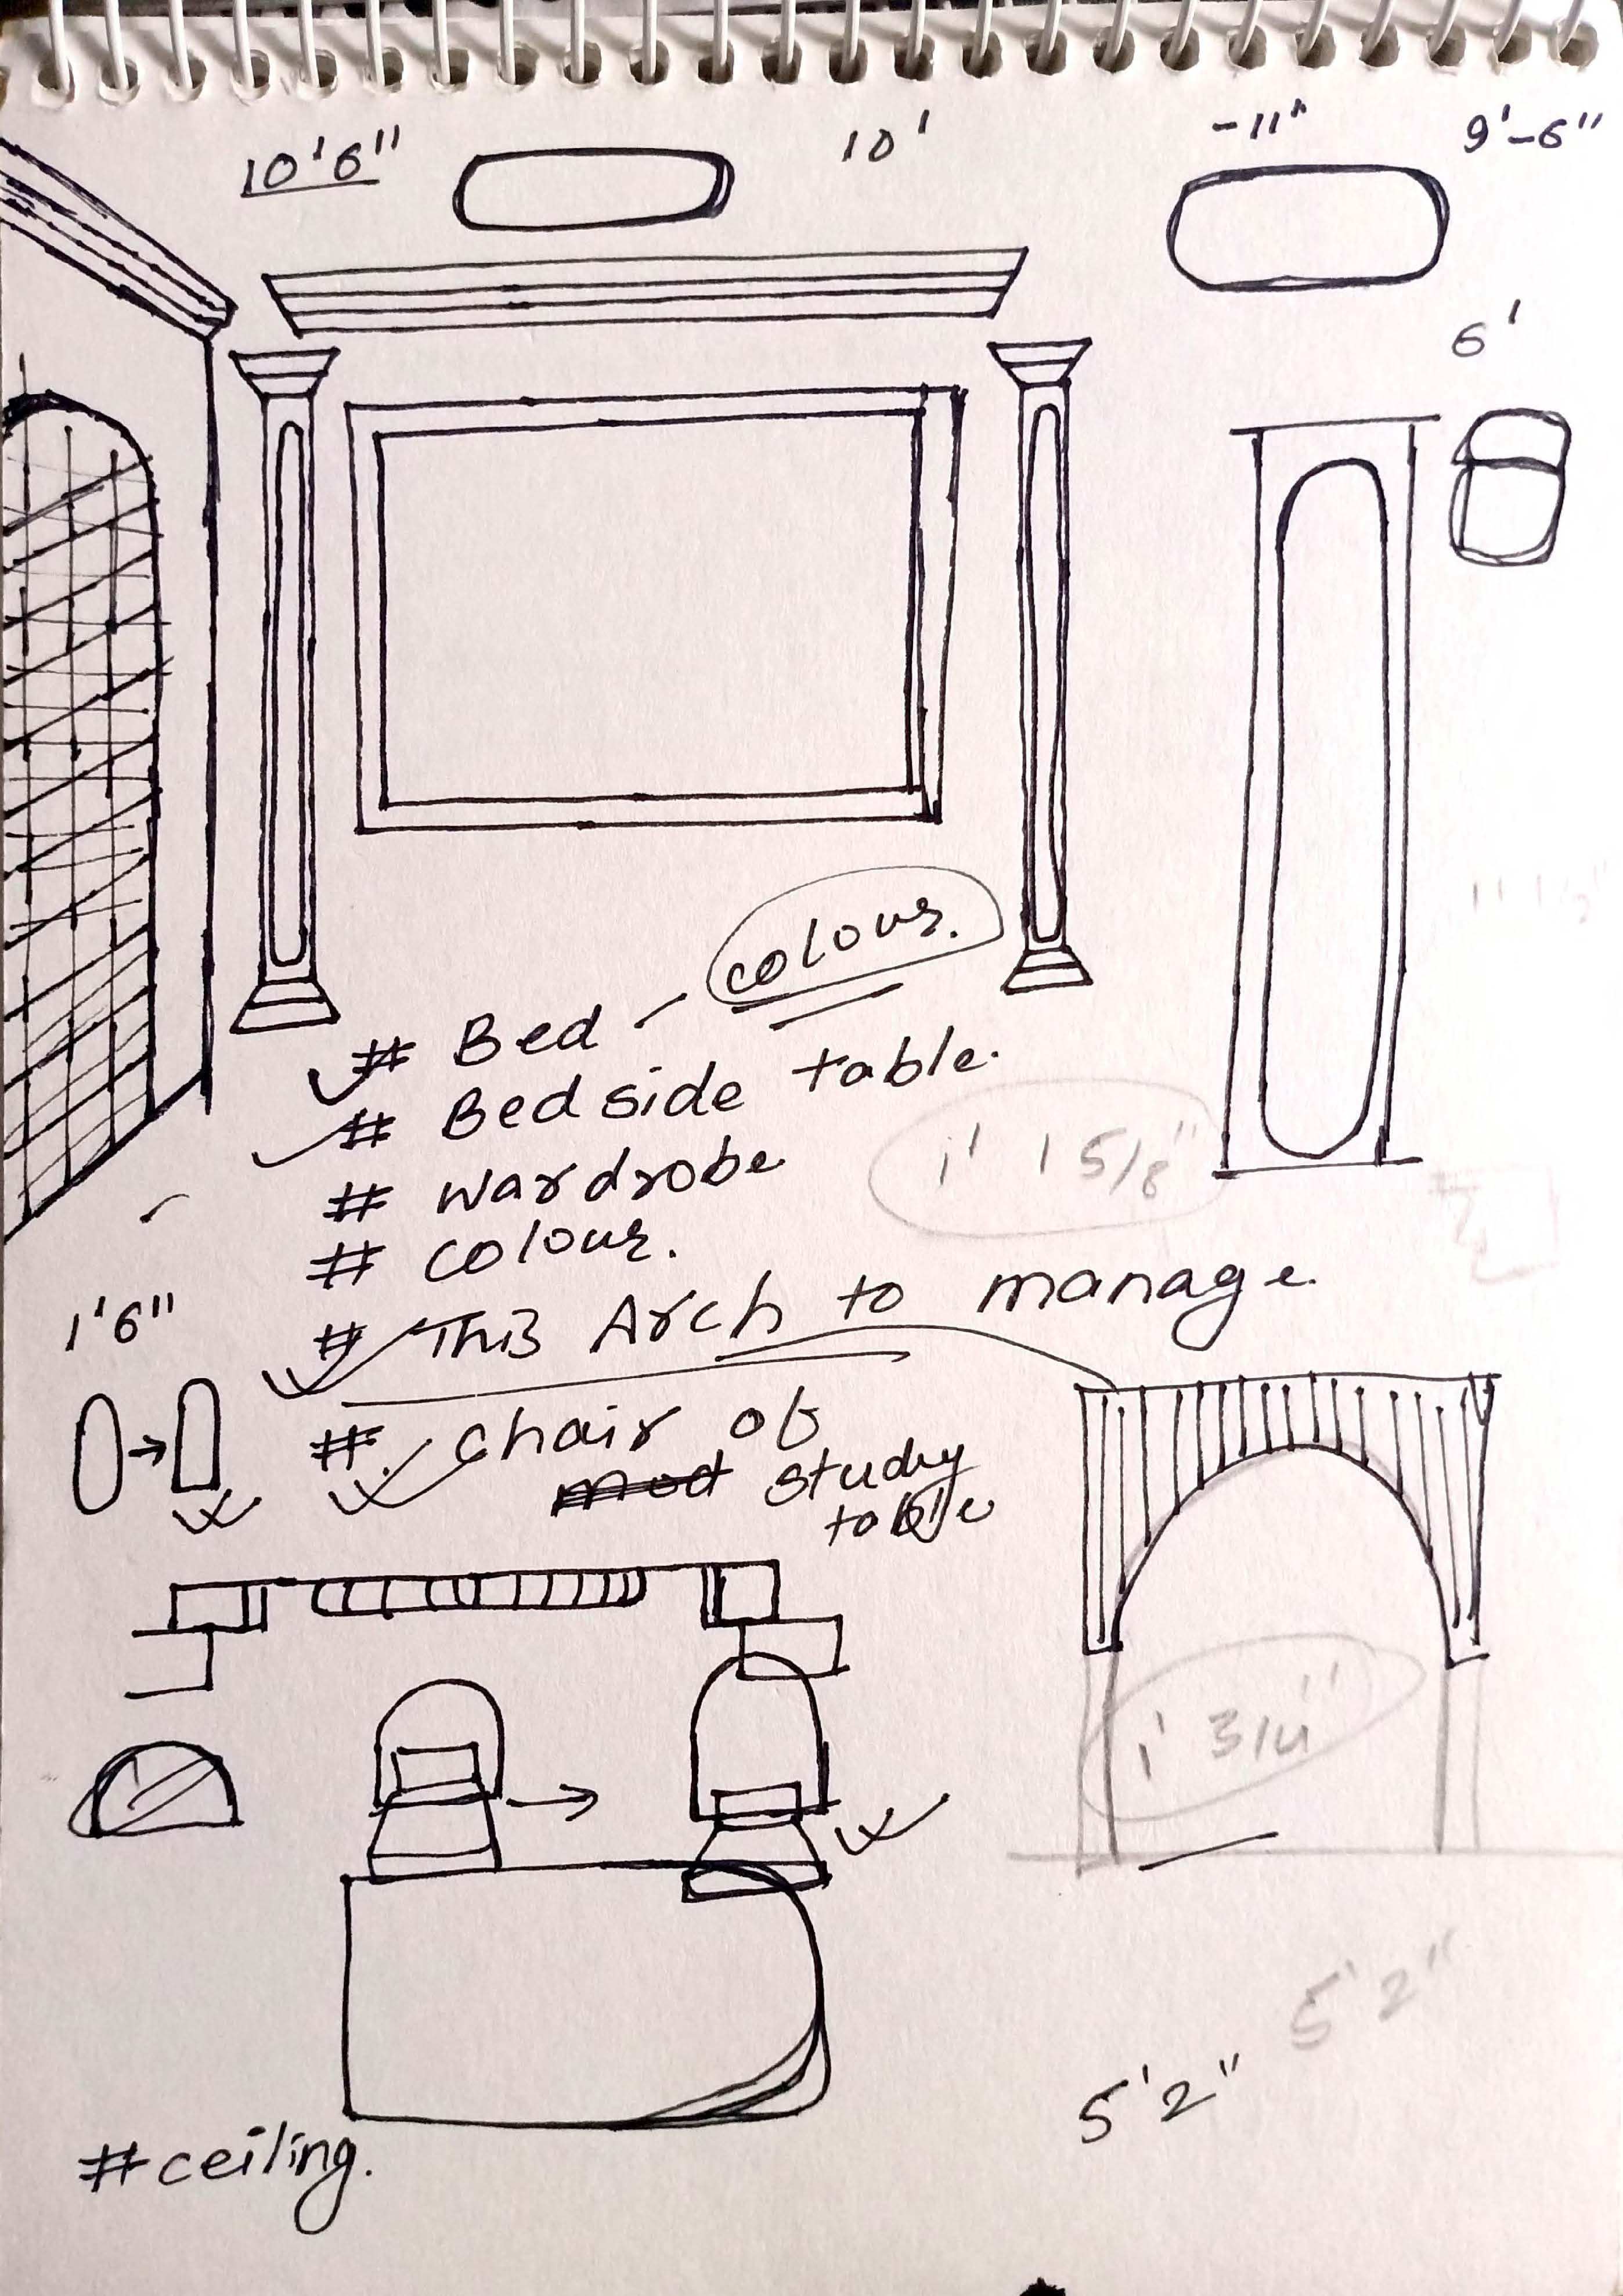 10'6"
10'
-11"
9'-6"
6'
# Bed - colour.
# Bed side table.
# wardrobe
# colour.
1' 1 5/8"
# This Arch to manage
1'6"
# chair of
mod study
table
1' 3/4"
5'2"
5'2"
# ceiling.